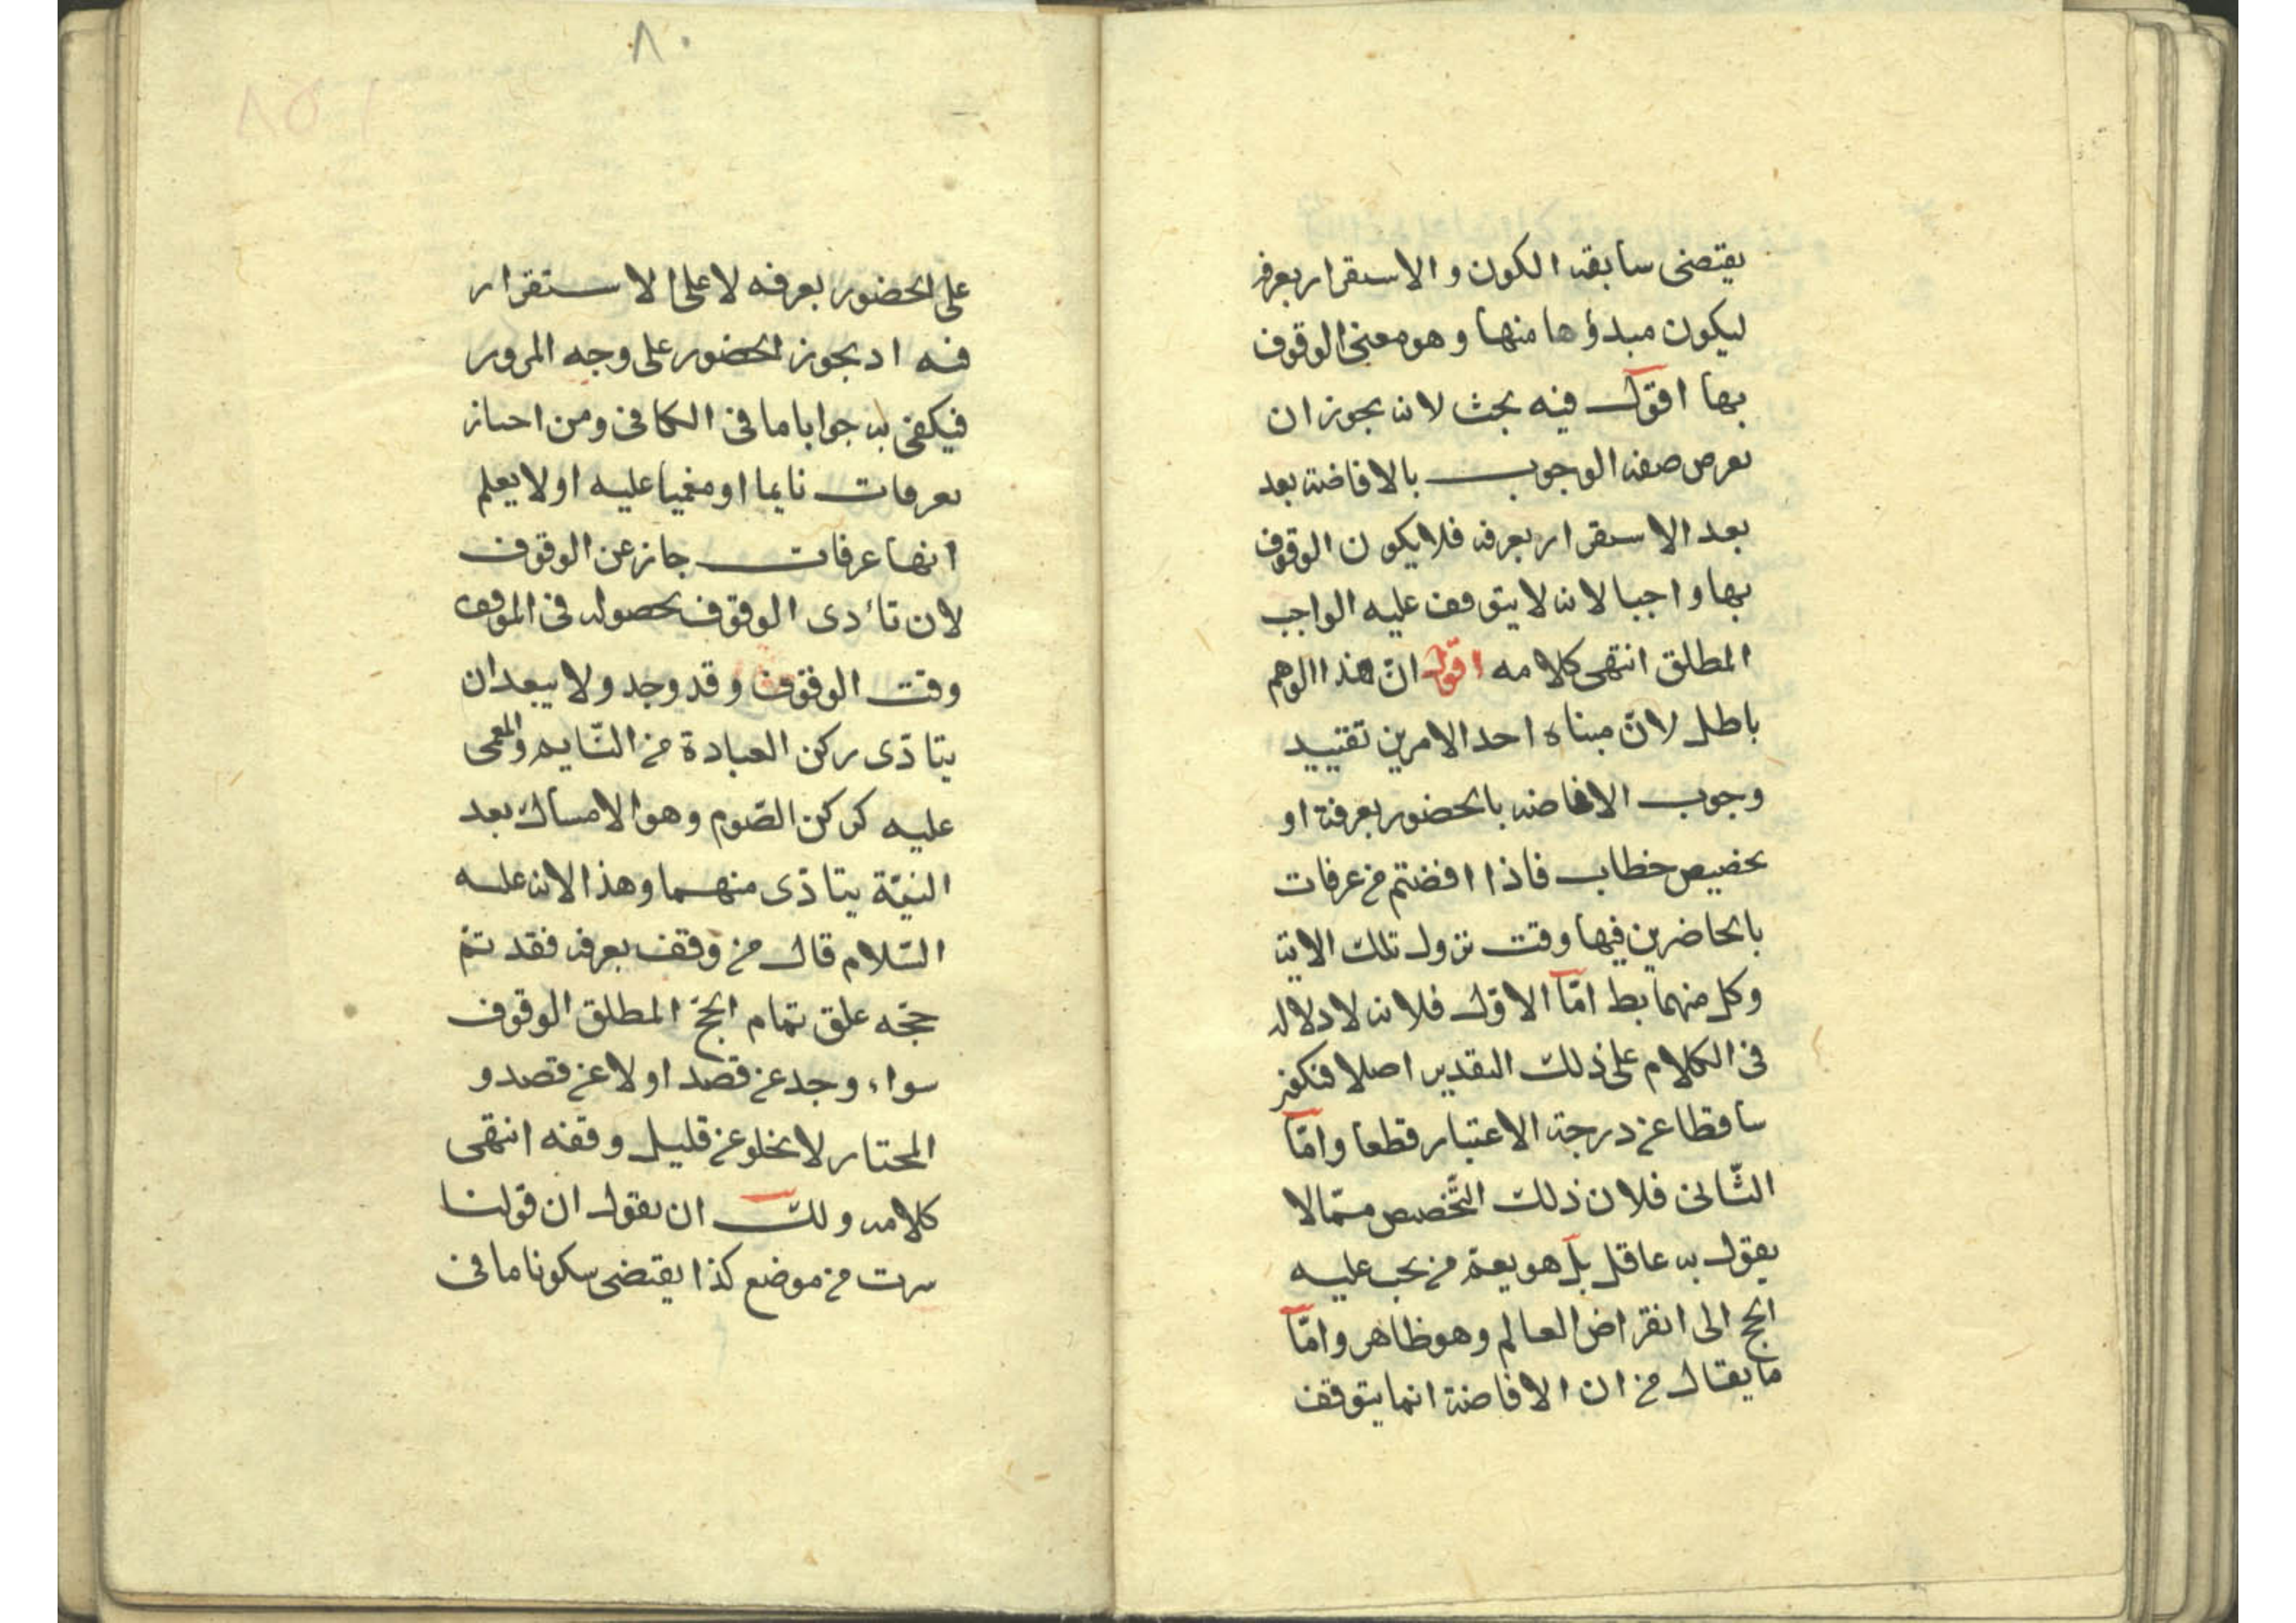 يقتضى سابقة الكون و الاستقرار بعرفة
ليكون مبدؤها منها و هو معنى الوقوف
بها اقول فيه بحث لانه يجوز ان
يعرض صفة الوجوب بالافاضة بعد
بعد الاستقرار بعرفة فلا يكون الوقوف
بها واجبا لانه لا يتوقف عليه الواجب
المطلق انتهى كلامه اقول انّ هذا الوهم
باطل لانّ مبناه احد الامرين تقييد
وجوب الافاضة بالحضور بعرفة او
تخصيص خطاب فاذا افضتم من عرفات
بالحاضرين فيها وقت نزول تلك الاية
وكل منهما بط امّا الاوّل فلانه لا دلالة
فى الكلام على ذلك التقدير اصلا فيكون
ساقطا عن درجة الاعتبار قطعا وامّا
الثّانى فلان ذلك التّخصيص ممّا لا
يقول به عاقل بل هو يعمّ من يجب عليه
الحج الى انقراض العالم وهو ظاهر وامّا
ما يقال من ان الافاضة انما يتوقف
٨٠
على الحضور بعرفه لا على الاستقرار
فيه اذ يجوز الحضور على وجه المرور
فيكفى به جوابا ما فى الكافى ومن اجتاز
بعرفات نايما او مغميا عليه او لا يعلم
انها عرفات جاز عن الوقوف
لان تأدى الوقوف بحصوله فى الموقف
وقت الوقوف وقد وجد ولا يبعد ان
يتادّى ركن العبادة من النّايم والمغمى
عليه كركن الصّوم وهو الامساك بعد
النيّة يتادّى منهما وهذا لانه عليه
السّلام قال من وقف بعرفة فقد تمّ
حجّه علق تمام الحجّ المطلق الوقوف
سواء وجد عن قصد او لا عن قصد و
المختار لا يخلو عن قليل وقفه انتهى
كلامه و لك ان يقول ان قولنا
سرت من موضع كذا يقتضى سكونا ما فى